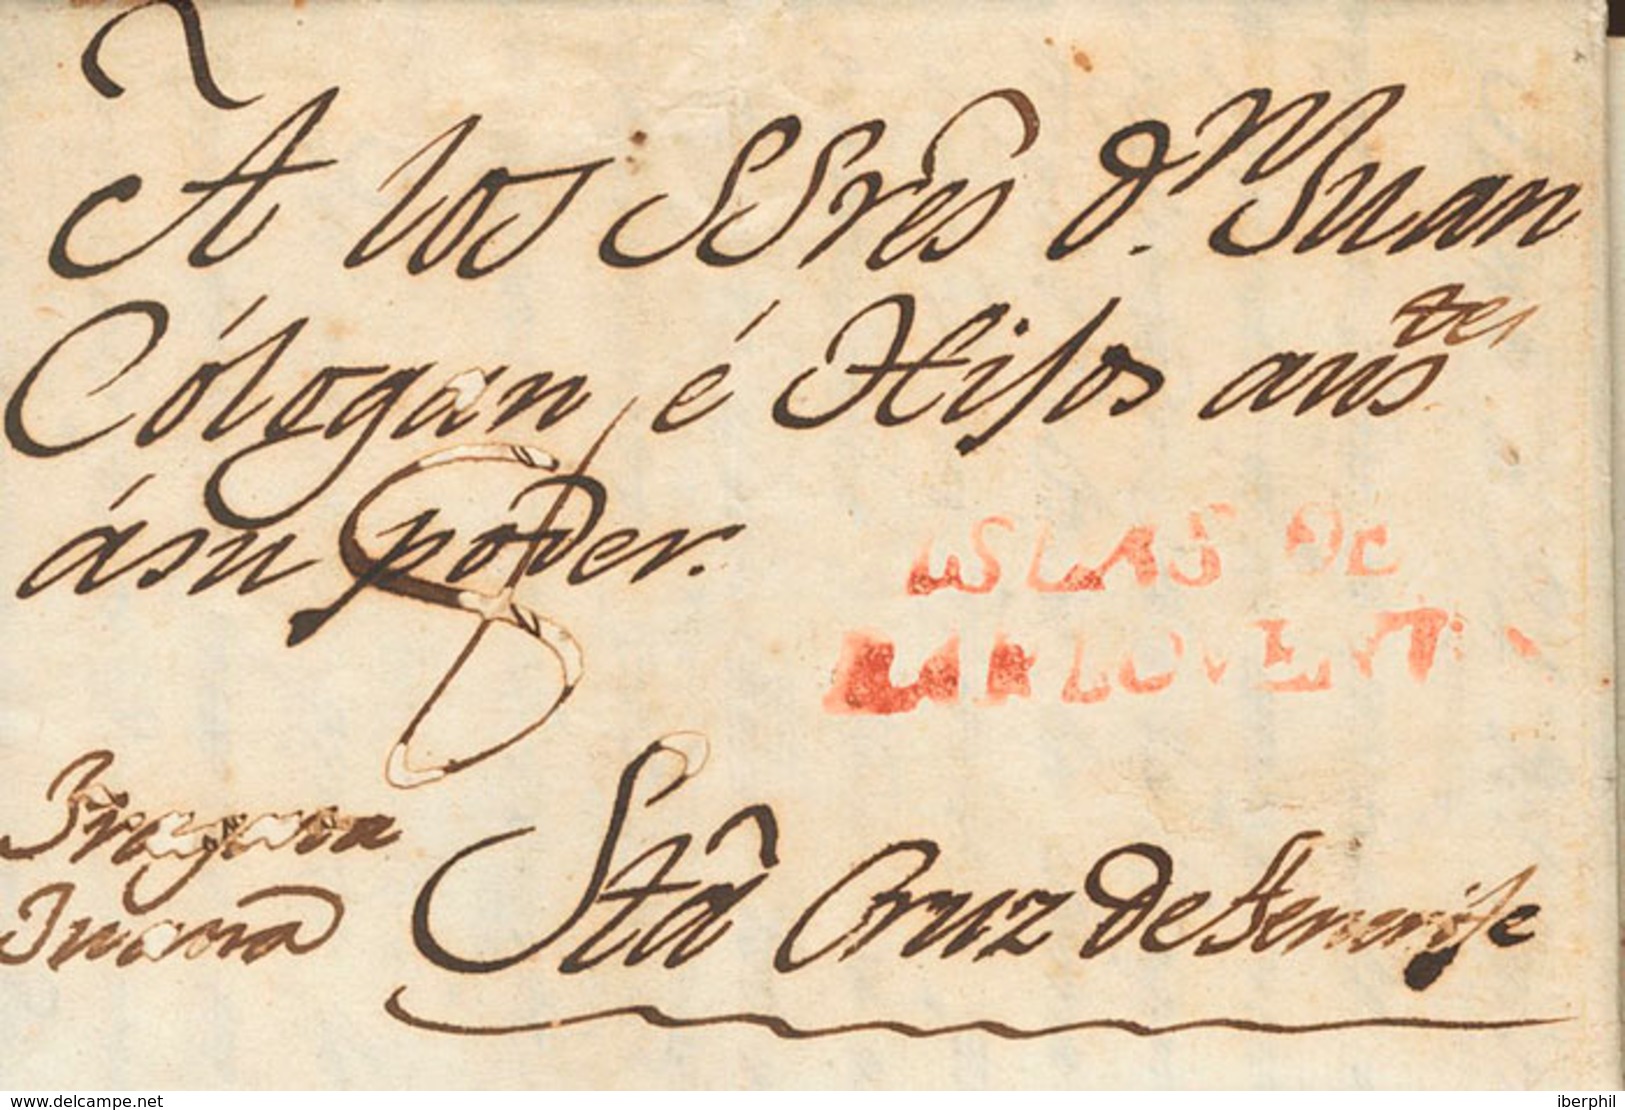 A los SSres dn. Juan
Cólogan, é Hijos austes
á su poder.
ISLAS De
BARLOVENTO
Fragata
Sta Cruz de Tenerife
www.delcampe.net
iberphil